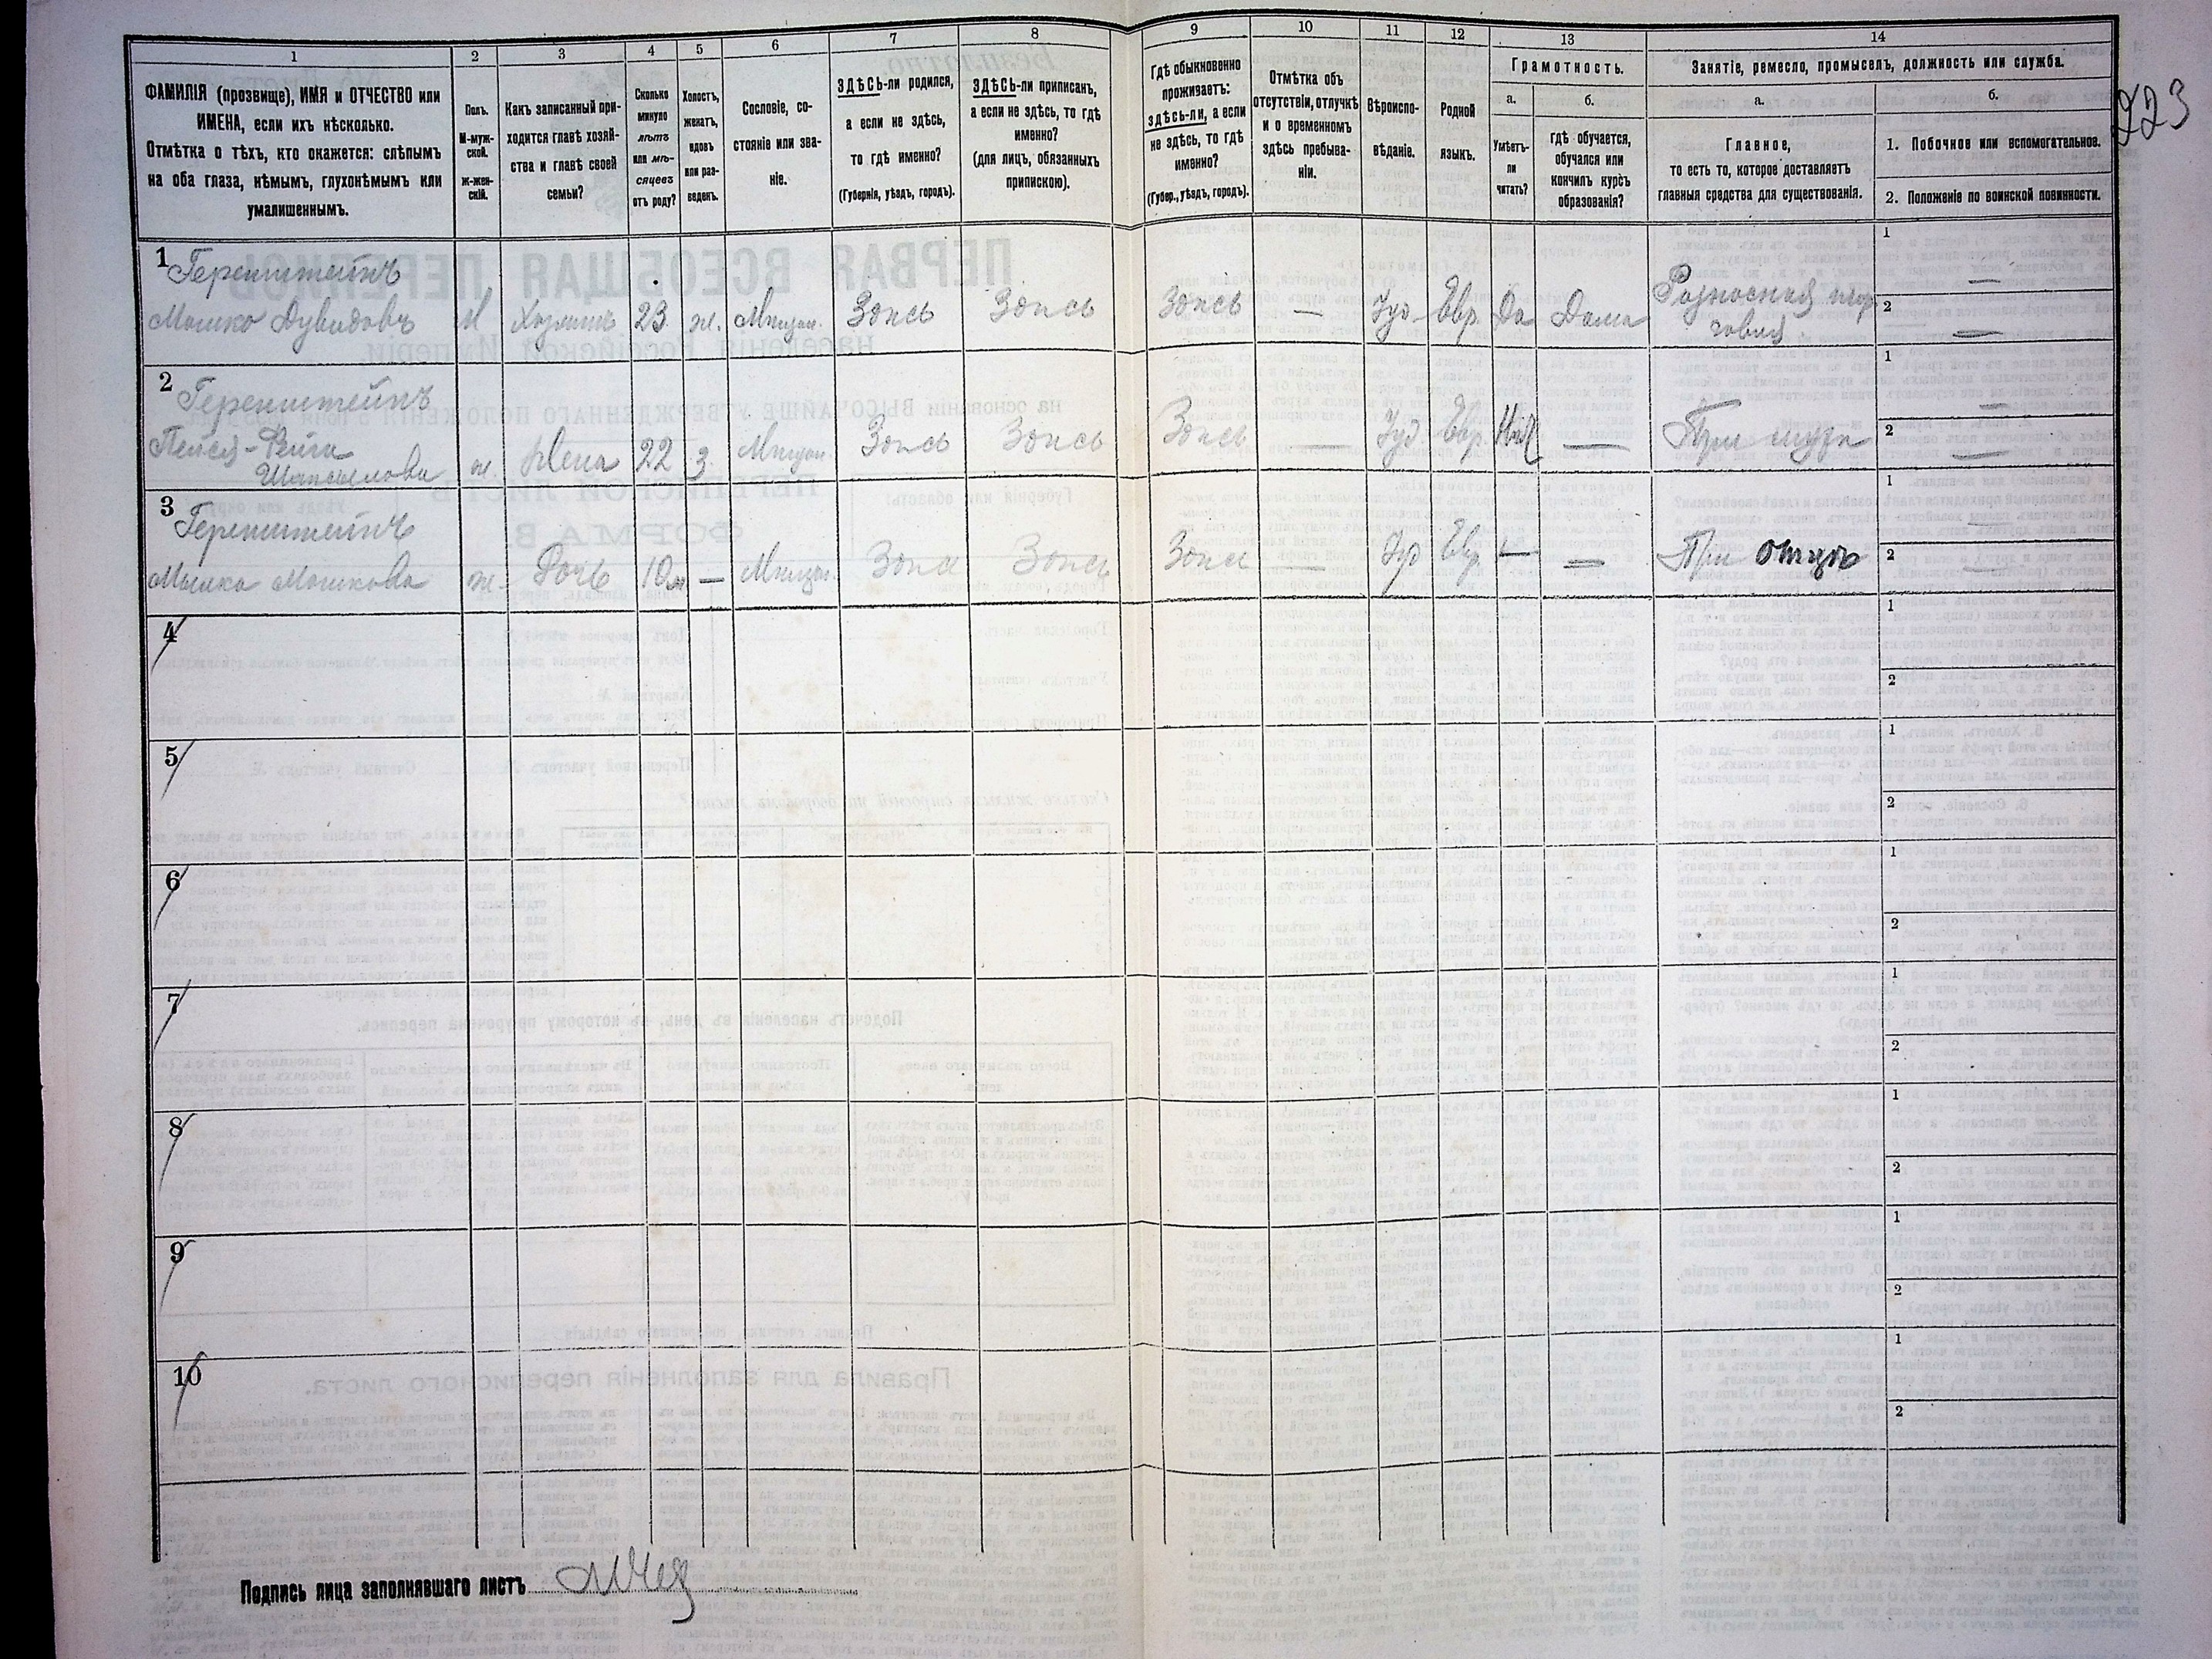 1 2 3 4 5 6 7 8 9 10 11 12 13 14
ФАМИЛІЯ (прозвище), ИМЯ и ОТЧЕСТВО или
ИМЕНА, если ихъ нѣсколько.
Отмѣтка о тѣхъ, кто окажется: слѣпымъ
на оба глаза, нѣмымъ, глухонѣмымъ или
умалишеннымъ.
Полъ.
М-муж-
ской.
Ж-жен-
скій.
Какъ записанный при-
ходится главѣ хозяй-
ства и главѣ своей
семьи?
Сколько
минуло
лѣтъ
или мѣ-
сяцевъ
отъ роду?
Холостъ,
женатъ,
вдовъ
или раз-
веденъ.
Сословіе, со-
стояніе или зва-
ніе.
ЗДѢСЬ-ли родился,
а если не здѣсь,
то гдѣ именно?
(Губернія, уѣздъ, городъ).
ЗДѢСЬ-ли приписанъ,
а если не здѣсь, то гдѣ
именно?
(для лицъ, обязанныхъ
припискою).
Гдѣ обыкновенно
проживаетъ:
здѣсь-ли, а если
не здѣсь, то гдѣ
именно?
(Губер., уѣздъ, городъ).
Отмѣтка объ
отсутствіи, отлучкѣ
и о временномъ
здѣсь пребыва-
ніи.
Вѣроиспо-
вѣданіе.
Родной
языкъ.
Грамотность.
а.
Умѣетъ-
ли
читать?
б.
гдѣ обучается,
обучался или
кончилъ курсъ
образованія?
Занятіе, ремесло, промыселъ, должность или служба.
а.
Главное,
то есть то, которое доставляетъ
главныя средства для существованія.
б.
1. Побочное или вспомогательное.
2. Положеніе по воинской повинности.
223
1 Геренштейнъ
Мошко Дувидовъ М Хозяинъ 23 ж. Мѣщан. Здѣсь Здѣсь Здѣсь — Іуд. Евр. Да Дома Разносная тор
говля.
1 —
2 —
2 Геренштейнъ
Пейся-Рейза
ж. Жена 22 З. Мѣщан. Здѣсь Здѣсь Здѣсь — Іуд Евр. Нѣт — При мужѣ
1 —
2 —
3 Геренштейнъ
Мошкова ж. Дочь 10 м — Мѣщан. Здѣсь Здѣсь Здѣсь — Іуд Евр. — — При отцѣ
1 —
2 —
4
1
2
5
1
2
6
1
2
7
1
2
8
1
2
9
1
2
10
1
2
Подпись лица заполнявшаго листъ